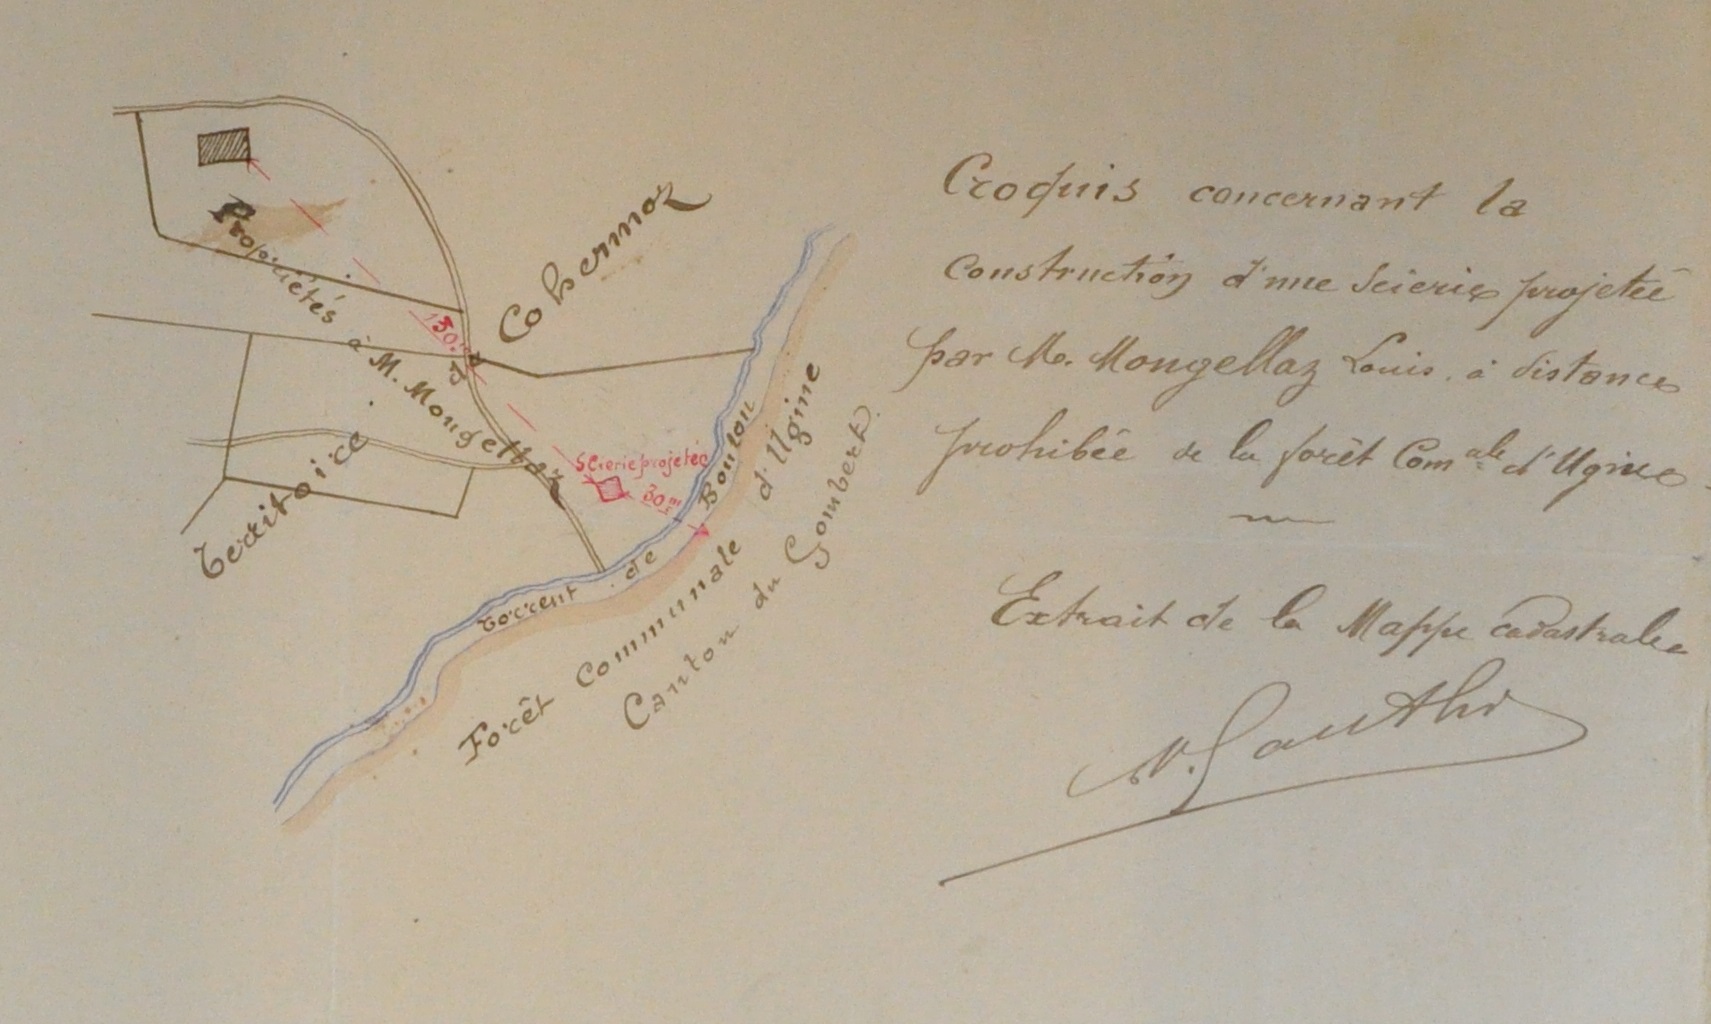 Propriétés à M. Mougellaz
130.m
Territoire de Cohennoz
Scierie projetée
30m
Torrent de Bonlon
Forêt Communale d'Ugine
Canton du Gombert.
Croquis concernant la
construction d'une Scierie projetée
par M. Mongellaz Louis, à distance
prohibée de la forêt Comale d'Ugine.
Extrait de la Mappe cadastrale